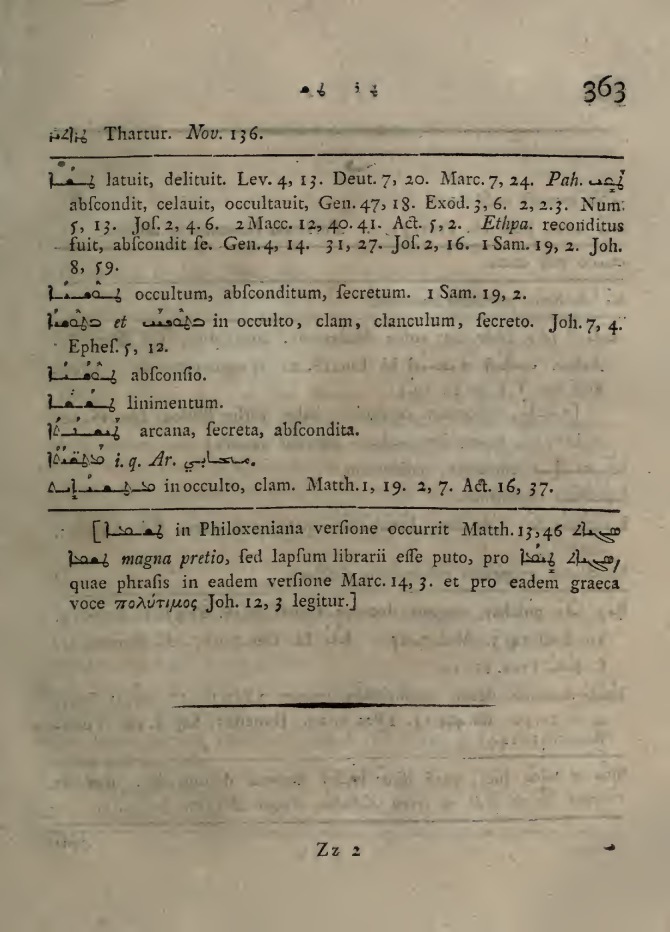 363
Thartur. Nov. 136.
ܛܫܐ latuit, delituit. Lev. 4, 13. Deut. 7, 20. Marc. 7, 24. Pah. ܛܫܝ
abſcondit, celauit, occultauit, Gen. 47, 18. Exod. 3, 6. 2, 2.3. Num.
5, 13. Joſ. 2, 4. 6. 2 Macc. 12, 40. 41. Act. 5, 2. Ethpa. reconditus
fuit, abſcondit ſe. Gen. 4, 14. 31, 27. Joſ. 2, 16. 1 Sam. 19, 2. Joh.
8, 59.
occultum, abſconditum, ſecretum. 1 Sam. 19, 2.
et in occulto, clam, clanculum, ſecreto. Joh. 7, 4.
Epheſ. 5, 12.
abſconſio.
linimentum.
arcana, ſecreta, abſcondita.
i. q. Ar.
ܡܛܫܝܐܝܬ in occulto, clam. Matth. 1, 19. 2, 7. Act. 16, 37.
[ in Philoxeniana verſione occurrit Matth. 13, 46
magna pretio, ſed lapſum librarii eſſe puto, pro
quae phraſis in eadem verſione Marc. 14, 3. et pro eadem graeca
voce πολύτιμος Joh. 12, 3 legitur.]
Zz 2